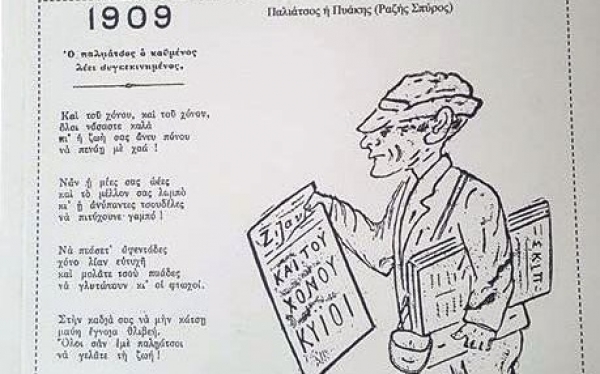 1909
Παλιάτσος ή Πυάκης (Ραζής Σπύρος)
Ὁ παλῃάτσος ὁ καϋμένος
λέει συγκεκινημένος.
Καὶ τοῦ χόνου, καὶ τοῦ χόνου,
ὅλοι νάσαστε καλά
κι' ἡ ζωή σας ἄνευ πόνου
νὰ πενάῃ μὲ χαά !
Νἆν ᾑ μίες σας ὡέες
καὶ τὸ μέλλον σας λαμπὸ
κι' ᾑ ἀνύπαντες τσουδέλες
νὰ πιτύχουνε γαμπό !
Νὰ πεάσετ' ἀφεντάδες
χόνο λίαν εὐτυχῆ
καὶ μολᾶτε τσοὺ παάδες
νὰ γλυτώτουν κι' οἱ φτωχοί.
Στὴν καδιά σας νὰ μὴν κάτσῃ
μαύη ἔγνοια θλιβεή.
Ὅλοι σὰν ἐμὲ παλῃάτσοι
νὰ γελᾶτε τὴ ζωή !
ΚΑΙ ΤΟΥ
ΧΟΝΟΥ
ΚΥΪΟΙ